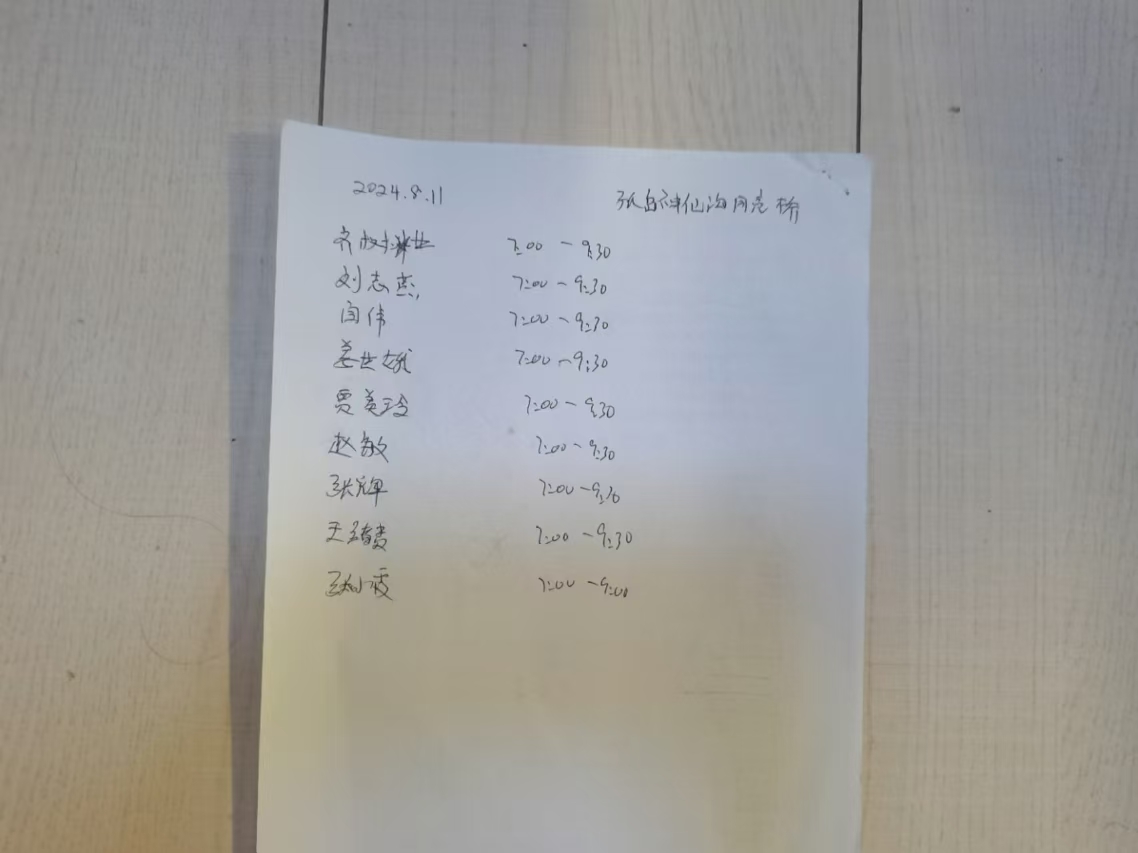 2024.8.11 孤岛神仙沟同兴桥
7:00-9:30
刘志杰 7:00-9:30
闫伟 7:00-9:30
姜世娥 7:00-9:30
贾美玲 7:00-9:30
赵敏 7:00-9:30
张辉 7:00-9:30
王 7:00-9:30
张小霞 7:00-9:00